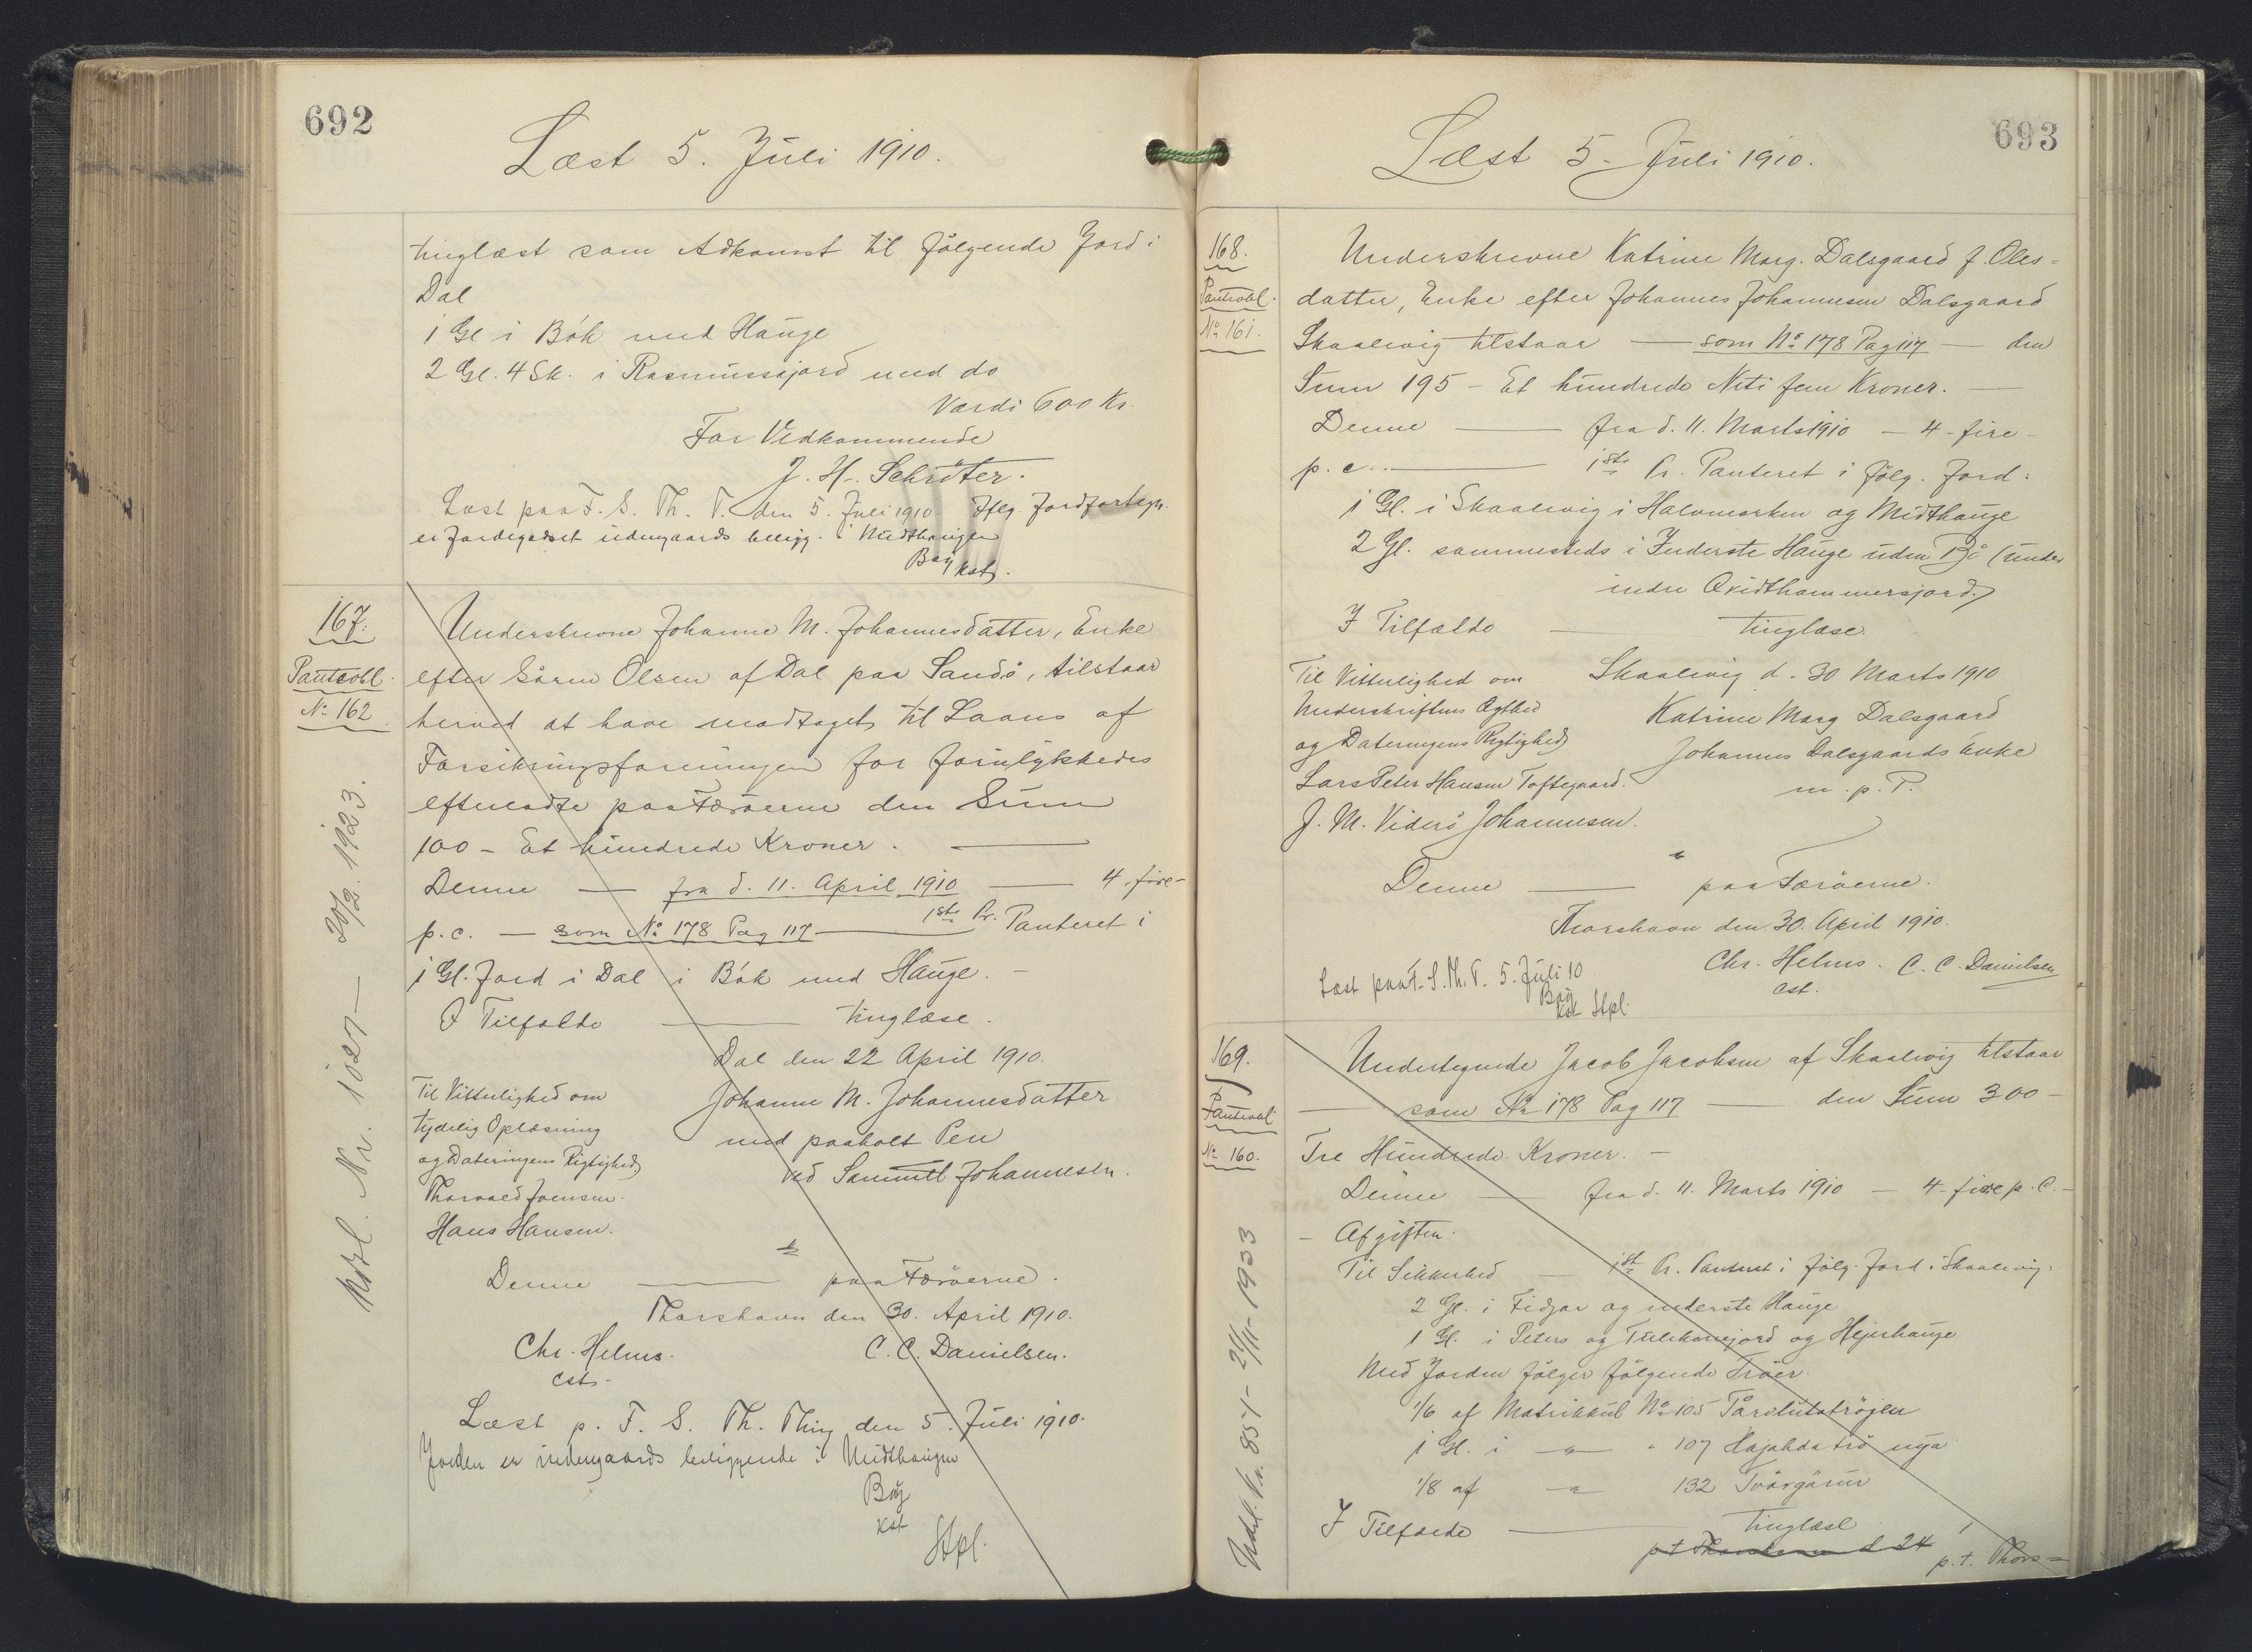 692
Læst 5. Juli 1910.
tinglæst som Adkomst til følgende Jord i
Dal
1 Gl i Bók med Hauge
2 Gl. 4 Sk. i Rasmussajord med do
Værdi 600 Kr.
For Vedkommende
J. H. Schrøter.
Læst paa F. S. Th. T. den 5. Juli 1910. Iflg. Jordfortegn.
er Jordegodset udengaards beligg. i Midthaugen
Bay
kst.
167.
Panteobl.
No 162
Nedl. Nr. 1027 — 20/2. 1923.
Underskrevne Johanne M. Johannesdatter, Enke
efter Sören Olsen af Dal paa Sandö, tilstaar
herved at have modtaget til Laans af
Forsikringsforeningen for forulykkedes
efterladte paa Færöerne den Sum
100 – Et hundrede Kroner. —
Denne — fra d. 11. April 1910 — 4. fire –
p. c. — som No 178 Pag 117 — 1ste Pr. Panteret i
1 Gl. Jord i Dal i Bók med Hauge. –
I Tilfælde — tinglæse.
Dal den 22 April 1910.
Til Vitterlighed om
tydelig Oplæsning
og Dateringens Rigtighed
Thorvald Joensen.
Hans Hansen.
Johanne M. Johannesdatter
med paaholt Pen
ved Sammel Johannesen.
Denne — paa Færöerne.
Thorshavn den 30. April 1910.
Chr. Helms. C. C. Danielsen.
cst.
Læst p. F. S. Th. Thing den 5. Juli 1910.
Jorden er indengaards beliggende i Midthaugen
Bay
kst
Stpl.
693
Læst 5. Juli 1910.
168.
Panteobl.
No 161.
Underskrevne Katrine Marg. Dalsgaard f. Oles=
datter, Enke efter Johannes Johannesen Dalsgaard
Skaalevig tilstaar — som No 178 Pag 117 — den
Sum 195 – Et hundrede Niti fem Kroner. —
Denne — fra d. 11. Marts 1910 — 4 – fire –
p. c. — 1ste Pr. Panteret i følg. Jord:
1 Gl. i Skaalevig i Halvmarken og Midthauge
2 Gl. sammesteds i Inderste Hauge uden Bö (under
indre Qvidthammersjord.)
I Tilfælde — tinglæse.
Skaalevig d. 30 Marts 1910
Til Vitterlighed om
Underskriftens Ægthed
og Dateringens Rigtighed
Lars Peter Hansen Toftegaard.
J. M. Viderö Johannesen.
Katrine Marg Dalsgaard
Johannes Dalsgaards Enke
m. p. P.
Denne — paa Færöerne.
Thorshavn den 30. April 1910.
Chr. Helms. C. C. Danielsen
cst.
Læst paa F. S. Th. T. 5. Juli 10
Bay
kst Stpl.
169.
Panteobl.
No 160.
Nedl. Nr. 854 – 21/11 – 1933
Undertegnede Jacob Jacobsen af Skaalevig tilstaar
— som No 178 Pag 117 — den Sum 300 –
Tre Hundrede Kroner. –
Denne — fra d. 11. Marts 1910 — 4 – fire p. C. –
– Afgiften.
Til Sikkerhed — 1ste Pr. Panteret i følg. Jord i Skaalevig:
2 Gl. i Fidjar og nederste Hauge
1 Gl. i Peters og Tulekonejord og Hejerhauge
Med Jorden følger følgende Tröer.
1/6 af Matrikkul No 105 Tårslutatröjen
1 Gl. i — " — " 107 Hajahdatrö nya
1/8 af — " 132 Tvörgarur
I Tilfælde — tinglæse
p t Thorshavn d 24 p. t. Thors=